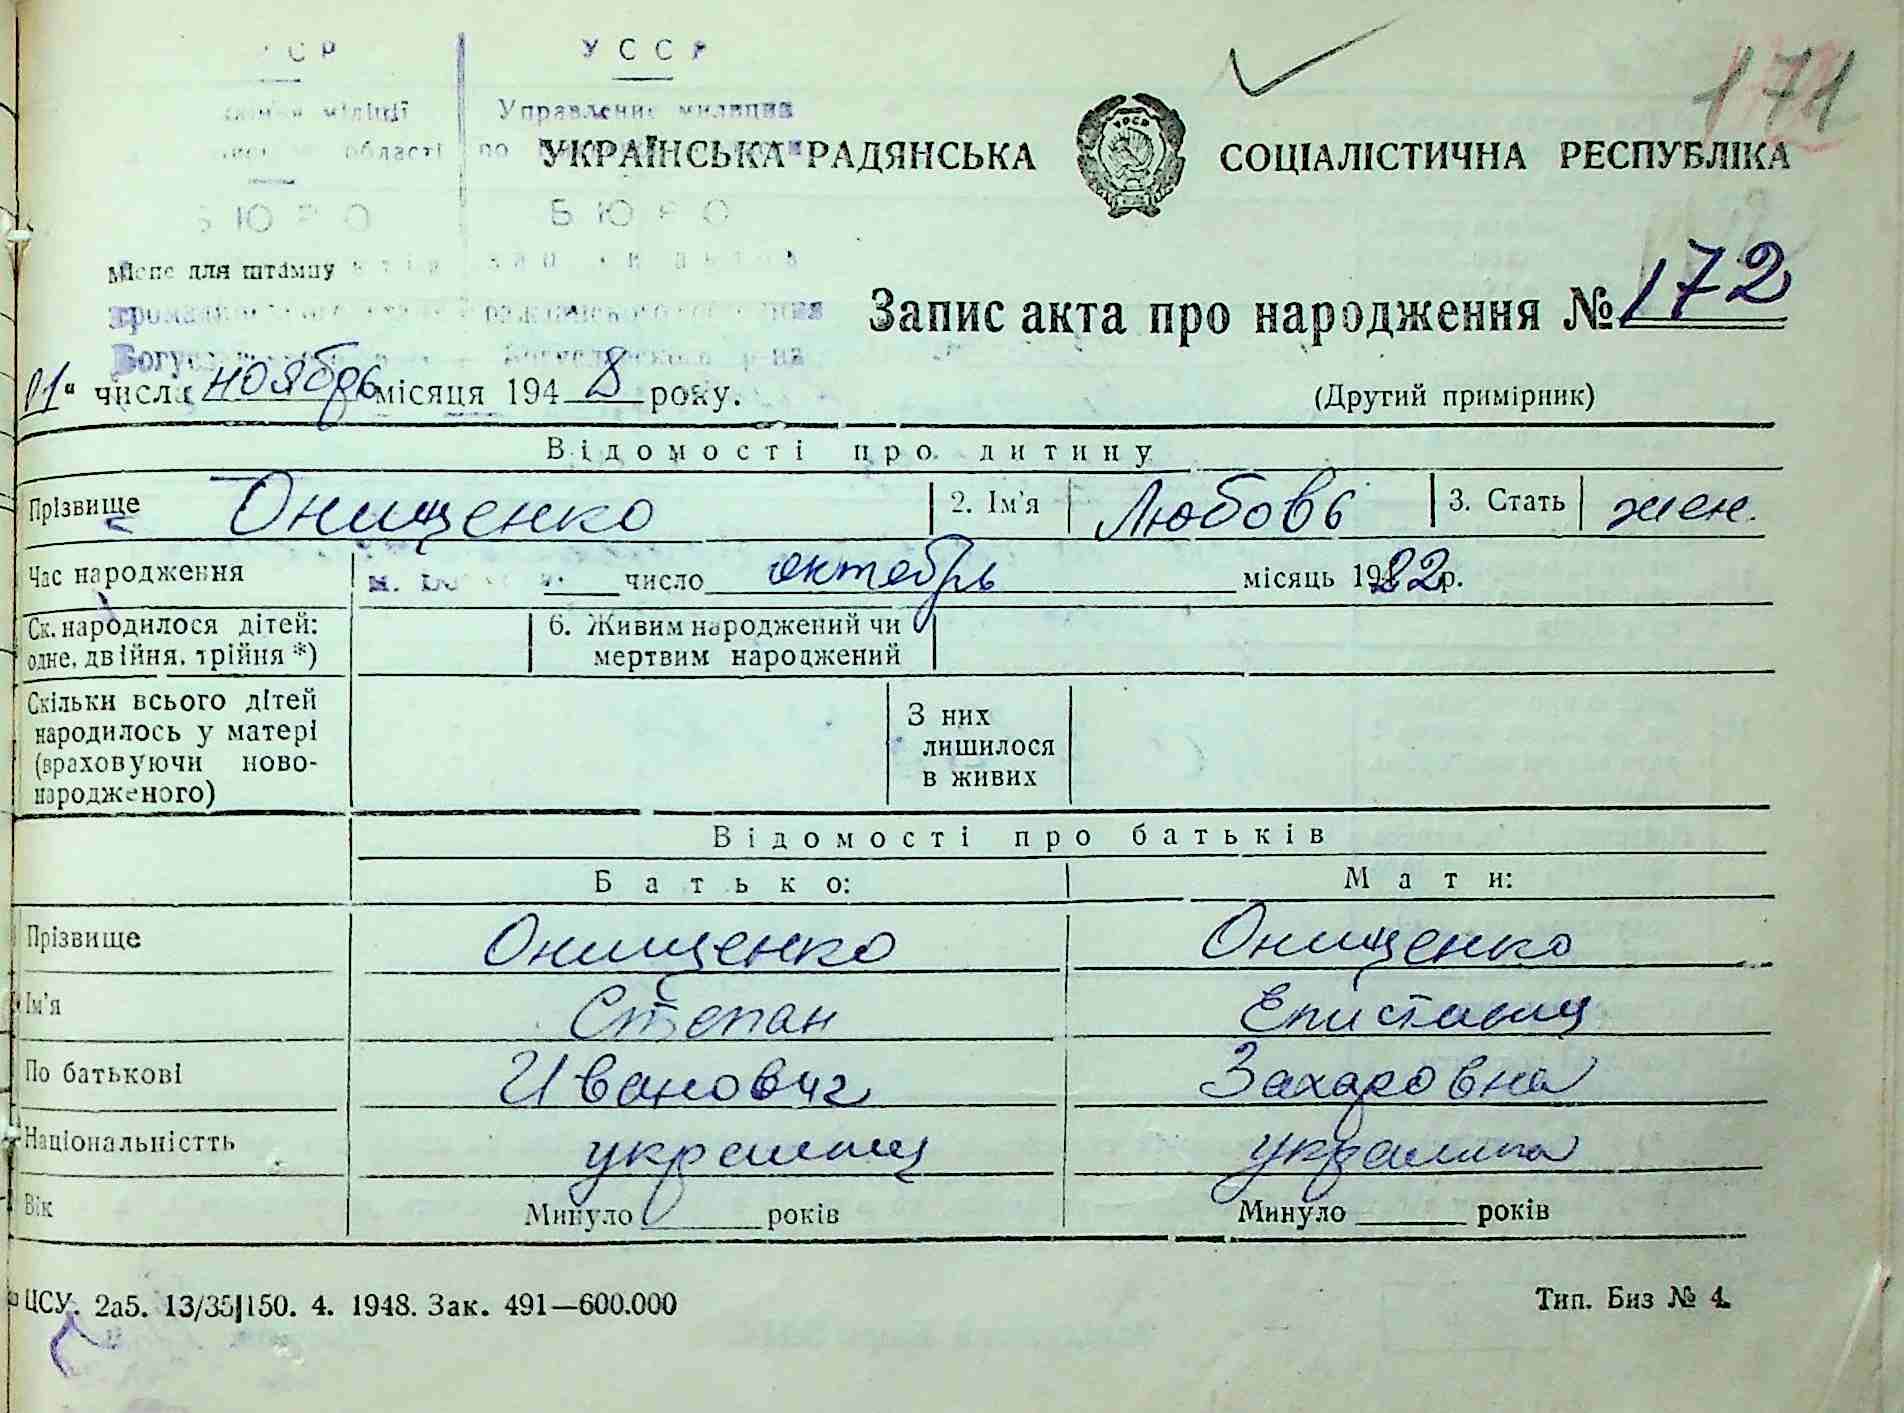 УССР
Управление милиции
області по
УКРАЇНСЬКА РАДЯНСЬКА СОЦІАЛІСТИЧНА РЕСПУБЛІКА
171
БЮРО БЮРО
Місце для штампу
Запис акта про народження № 172
числа ноябрь місяця 1948 року.
(Другий примірник)
Відомості про дитину
Прізвище Онищенко 2. Ім'я Любовь 3. Стать жен.
Час народження число октябрь місяць 1922 р.
Ск. народилося дітей: 6. Живим народжений чи
одне, двійня, трійня *) мертвим народжений
Скільки всього дітей З них
народилось у матері лишилося
(враховуючи ново- в живих
народженого)
Відомості про батьків
Батько: Мати:
Прізвище Онищенко Онищенко
Ім'я Степан
По батькові Иванович Захаровна
Національністть украинц украинка
Вік Минуло ______ років Минуло ______ років
ЦСУ. 2а5. 13/35|150. 4. 1948. Зак. 491—600.000 Тип. Биз № 4.